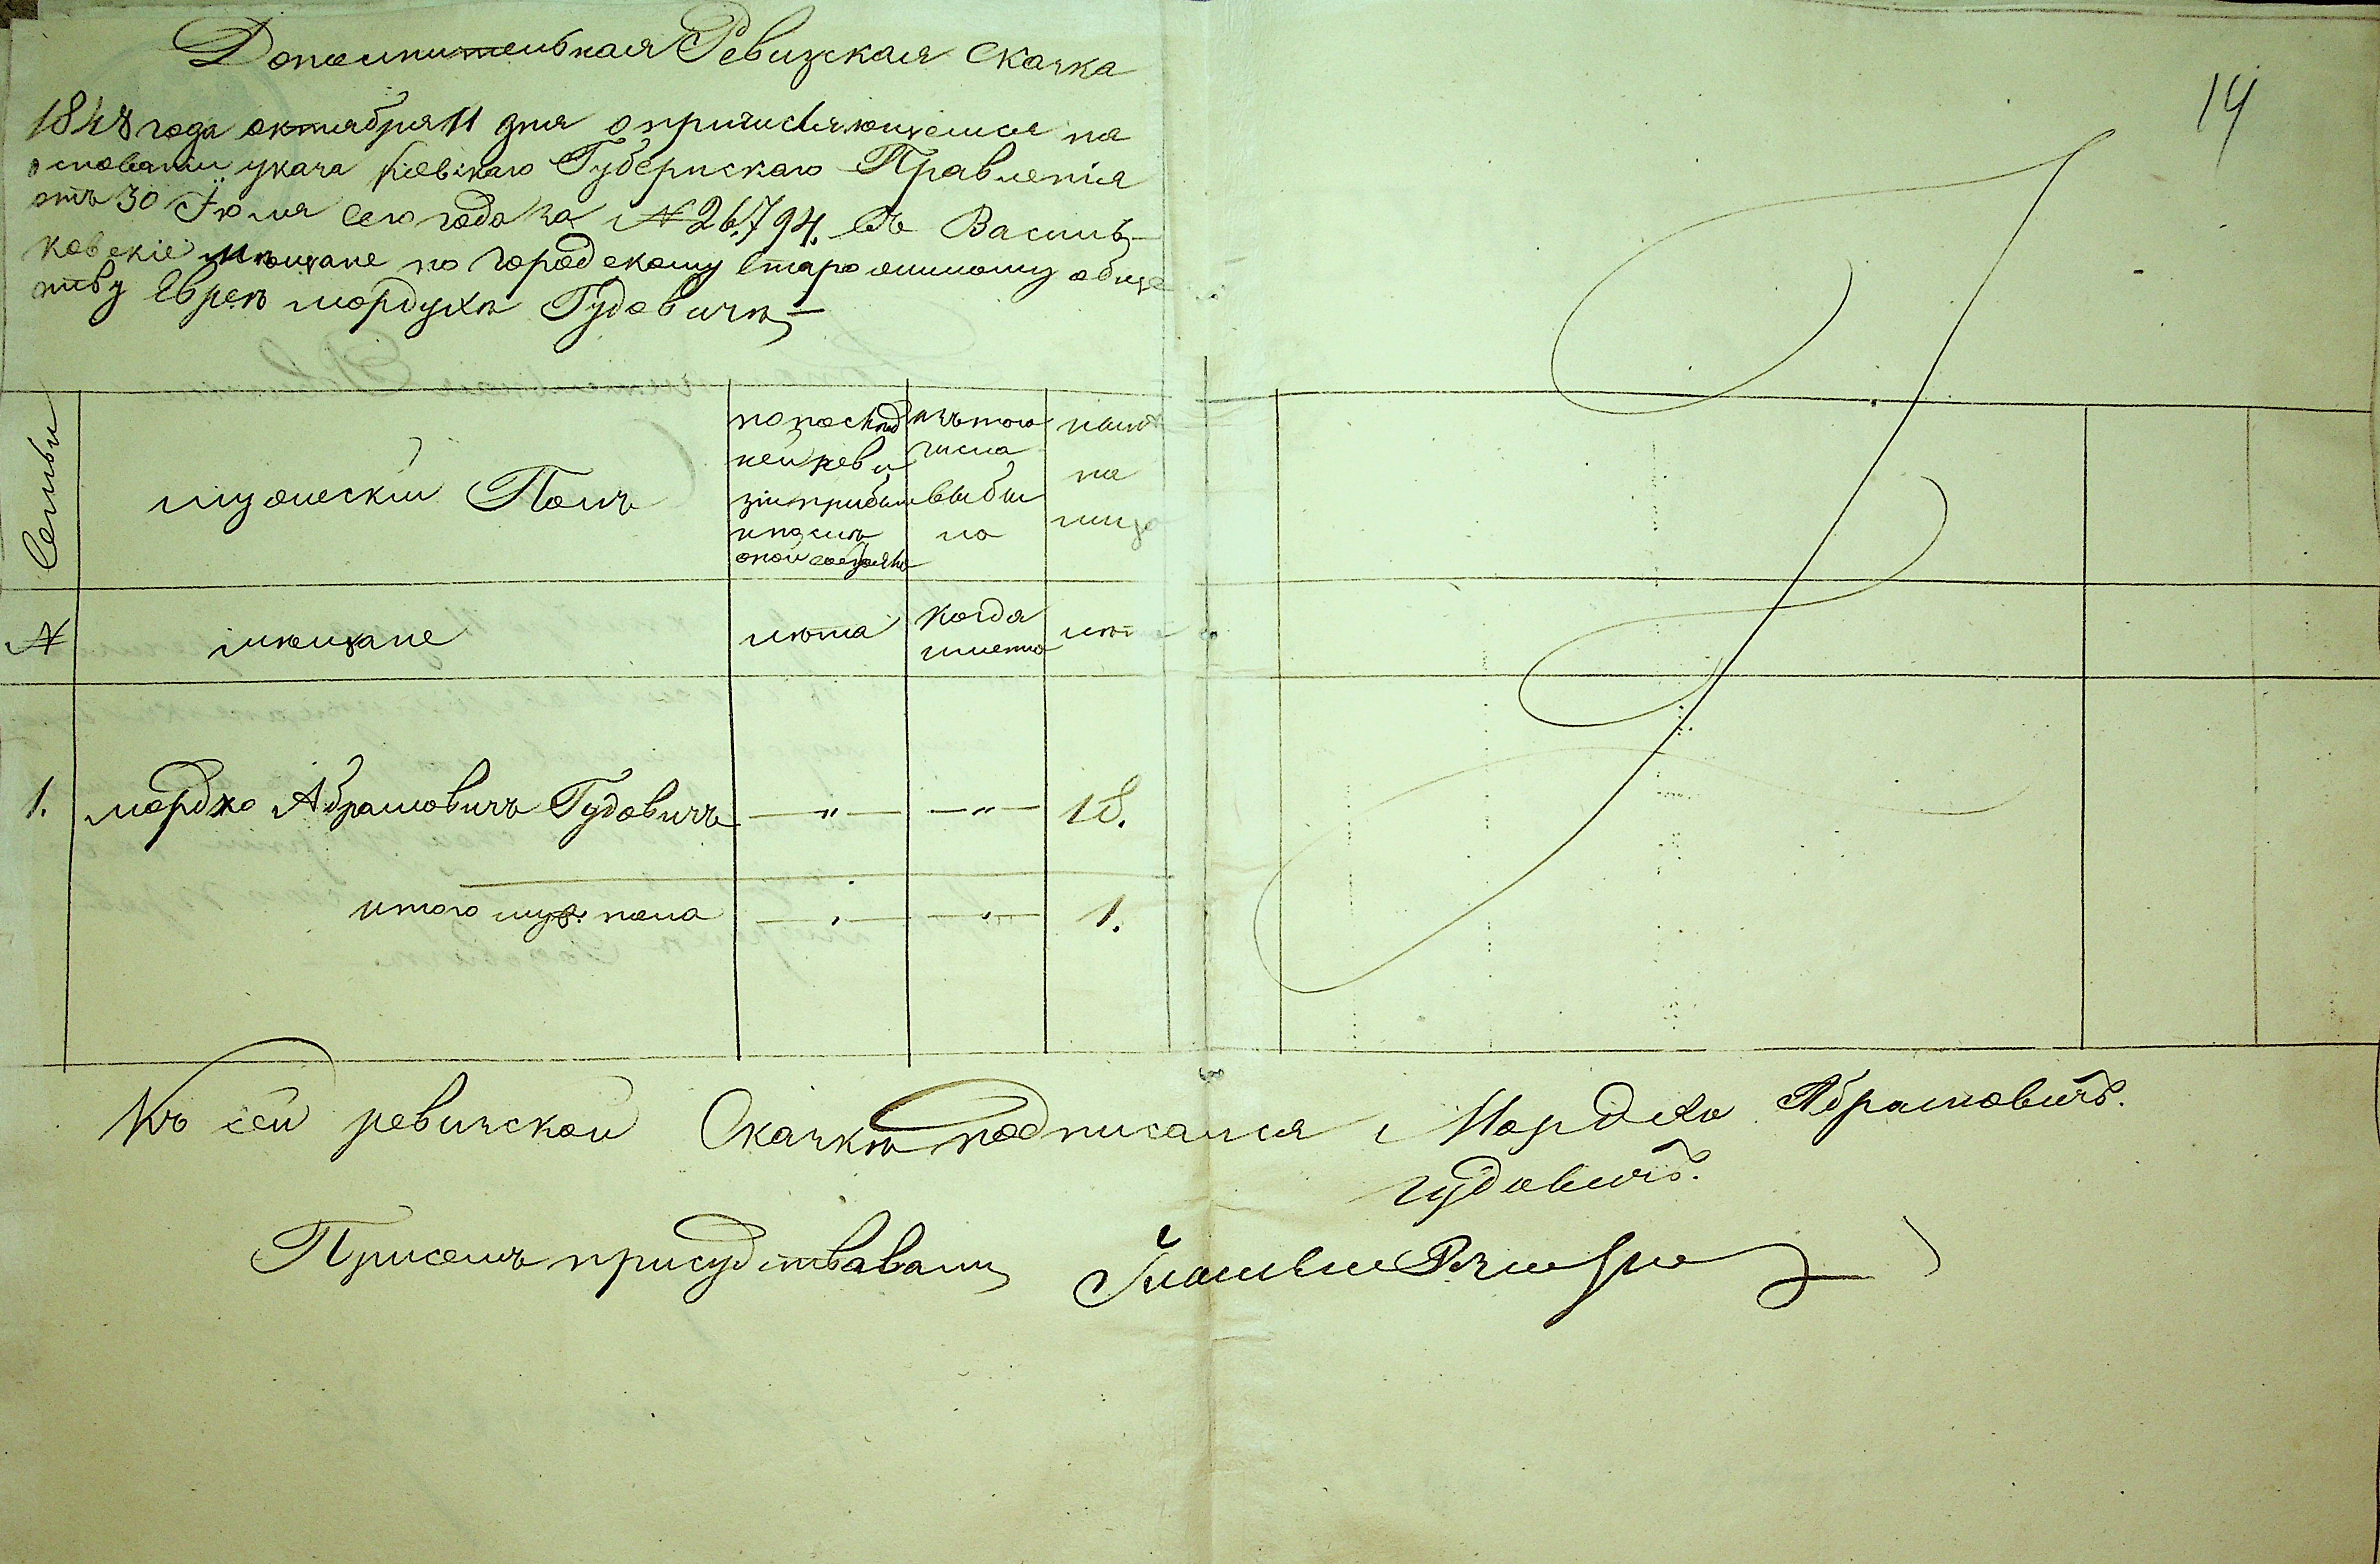 Дополнительная Ревизская Скаска
14
1848 года октября 11 дня о причисляющемся на
основаніи указа Кіевскаго Губернскаго Правленія
отъ 30 Іюля сего года за № 26,794. въ Василь-
ковскіе мѣщане по городскому старожилому обще
ству Еврею Мордухѣ Гудовичѣ
Семьи
мужескій Полъ
по послѣд
ней реви
зіи прибыли
и послѣ
оной
изъ того
числа
выбы
ло
нынѣ
на
лицо
№
мѣщане
лѣта
когда
именно
лѣт
1. мордко Абрамовичъ Гудовичъ — " — — " — 18.
итого муж. пола — " — — " — 1.
Къ сей ревизской Скаскѣ подписался Мордко Абрамовичъ.
гудовичъ.
При семъ присудствавалъ